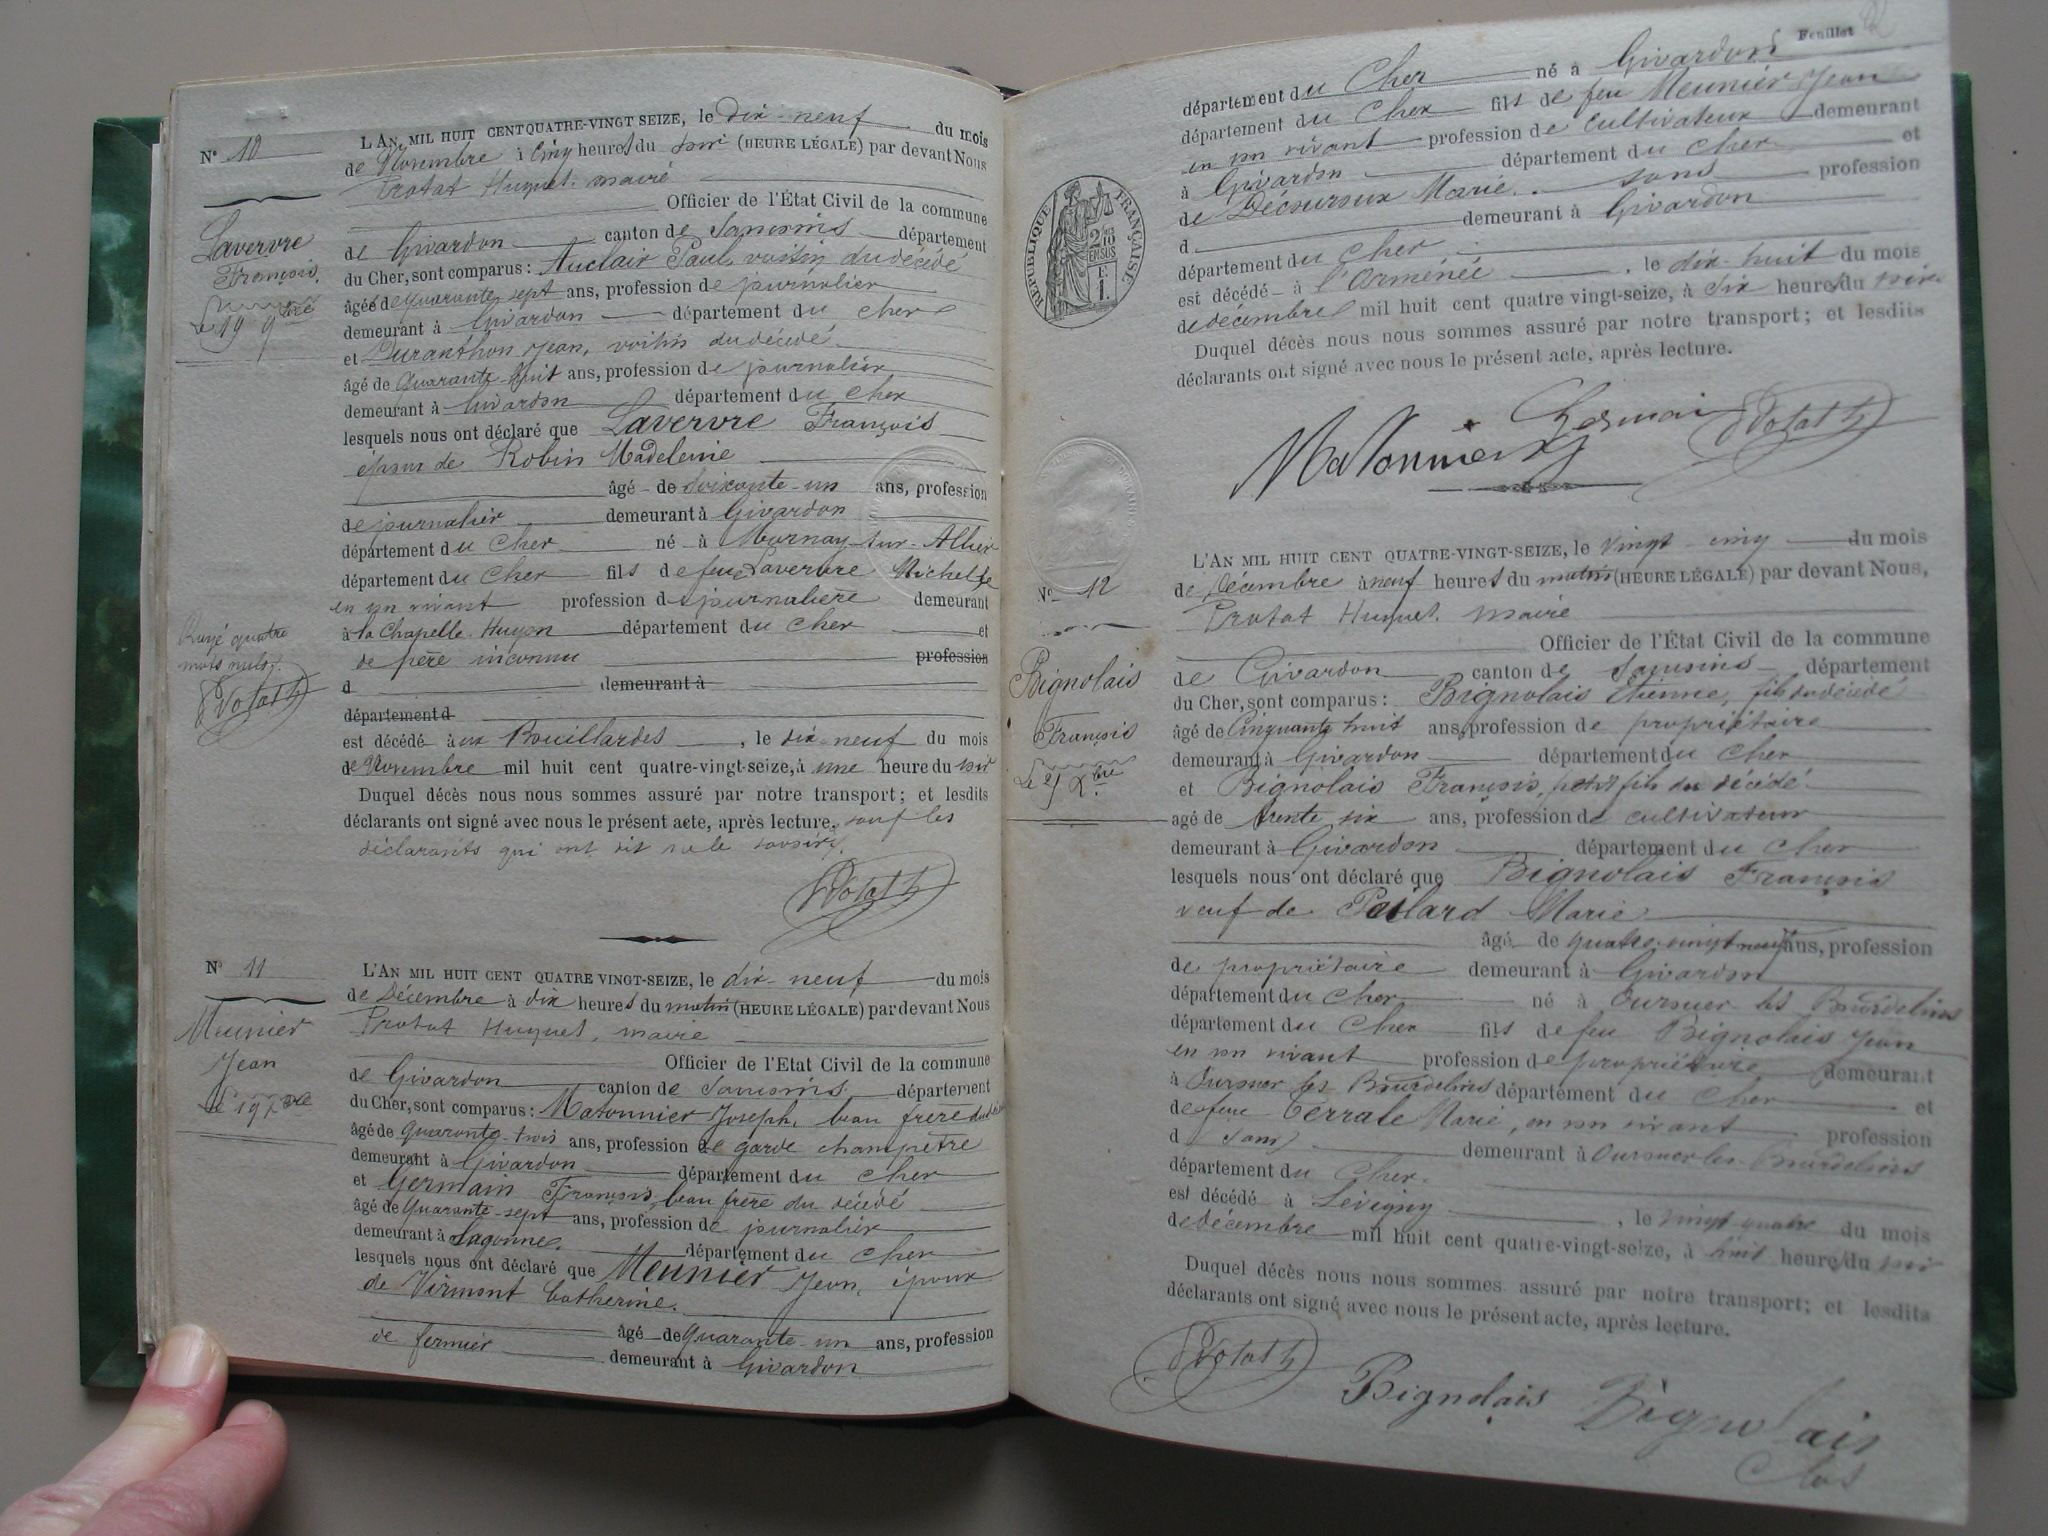 Nº 10
Lavervre
François
le 19 9bre
Rayé quatre
mots nuls.
L'AN MIL HUIT CENT QUATRE-VINGT SEIZE, le dix-neuf du mois
de Novembre à cinq heures du soir (HEURE LÉGALE) par devant Nous
Protat Huguet, maire
Officier de l'État Civil de la commune
de Givardon canton de Sancoins département
du Cher, sont comparus : Auclair Paul, voisin du décédé
âgés de quarante sept ans, profession de journalier
demeurant à Givardon département du Cher
et Duranthon Jean, voisin du décédé
âgé de quarante-huit ans, profession de journalier
demeurant à Givardon département du Cher
lesquels nous ont déclaré que Lavervre François
époux de Robin Madeleine
âgé de soixante-un ans, profession
de journalier demeurant à Givardon
département du Cher né à Mornay-sur-Allier
département du Cher fils de feue Lavervre Michelle
en son vivant profession de journalière demeurant
à la Chapelle Hugon département du Cher et
de père inconnu profession
d demeurant à
département d
est décédé aux Bouillardes, le dix-neuf du mois
de Novembre mil huit cent quatre-vingt-seize, à une heure du soir
Duquel décès nous nous sommes assuré par notre transport; et lesdits
déclarants ont signé avec nous le présent acte, après lecture, sauf les
déclarants qui ont dit ne le savoir.
Nº 11
Meunier
Jean
le 19 Xbre
L'AN MIL HUIT CENT QUATRE VINGT-SEIZE, le dix-neuf du mois
de Décembre à dix heures du matin (HEURE LÉGALE) par devant Nous
Protat Huguet, maire
Officier de l'Etat Civil de la commune
de Givardon canton de Sancoins département
du Cher, sont comparus : Matonnier Joseph, beau frère du décédé
âgé de quarante-trois ans, profession de garde champêtre
demeurant à Givardon département du Cher
et Germain François, beau frère du décédé
âgé de quarante-sept ans, profession de journalier
demeurant à Sagonne département du Cher
lesquels nous ont déclaré que Meunier Jean, époux
de Virmont Catherine.
âgé de quarante-un ans, profession
de fermier demeurant à Givardon
Feuillet
département du Cher né à Givardon
département du Cher fils de feu Meunier Jean
en son vivant profession de cultivateur demeurant
à Givardon département du Cher et
de Découroux Marie sans profession
d demeurant à Givardon
département du Cher
est décédé à l'Orménée, le dix-huit du mois
de décembre mil huit cent quatre vingt-seize, à six heures du soir
Duquel décès nous nous sommes assuré par notre transport; et lesdits
déclarants ont signé avec nous le présent acte, après lecture.
RÉPUBLIQUE FRANÇAISE
2/10 EN SUS
F
1.
Matonnier Germain Protat h
Nº 12
Bignolais
François
Le 25 Xbre
L'AN MIL HUIT CENT QUATRE-VINGT-SEIZE, le vingt-cinq du mois
de Décembre à neuf heures du matin (HEURE LÉGALE) par devant Nous,
Protat Huguet, maire
Officier de l'État Civil de la commune
de Givardon canton de Sancoins département
du Cher, sont comparus : Bignolais Etienne, fils du décédé
âgé de cinquante huit ans, profession de propriétaire
demeurant à Givardon département du Cher
et Bignolais François, petit fils du décédé
agé de trente six ans, profession de cultivateur
demeurant à Givardon département du Cher
lesquels nous ont déclaré que Bignolais François
veuf de Paillard Marie
âgé de quatre-vingt-neuf ans, profession
de propriétaire demeurant à Givardon
département du Cher né à Ourouer les Bourdelins
département du Cher fils de feu Bignolais Jean
en son vivant profession de propriétaire demeurant
à Ourouer les Bourdelins département du Cher et
de feue Terrate Marie, en son vivant profession
d sans demeurant à Ourouer les Bourdelins
département du Cher.
est décédé à Lévigny, le vingt quatre du mois
de décembre mil huit cent quatre-vingt-seize, à huit heures du soir
Duquel décès nous nous sommes assuré par notre transport; et lesdits
déclarants ont signé avec nous le présent acte, après lecture.
Protat h
Bignolais Bignolais